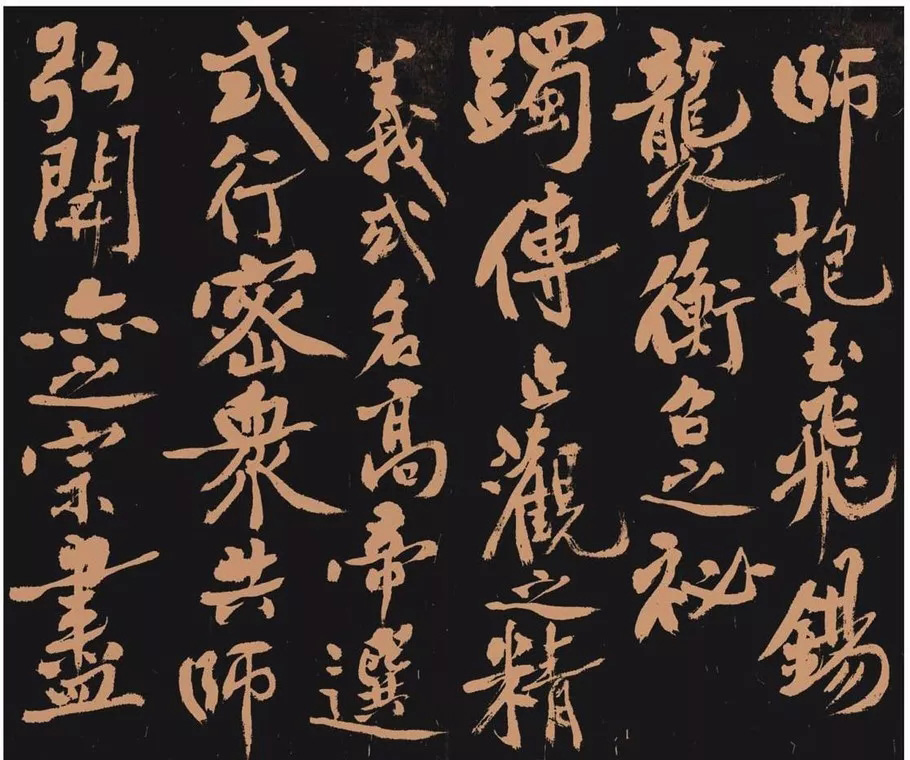 師抱玉飛錫
襲衡台之祕
躅傳止觀之精
義或名高帝選
或行密衆共師
弘開示之宗盡